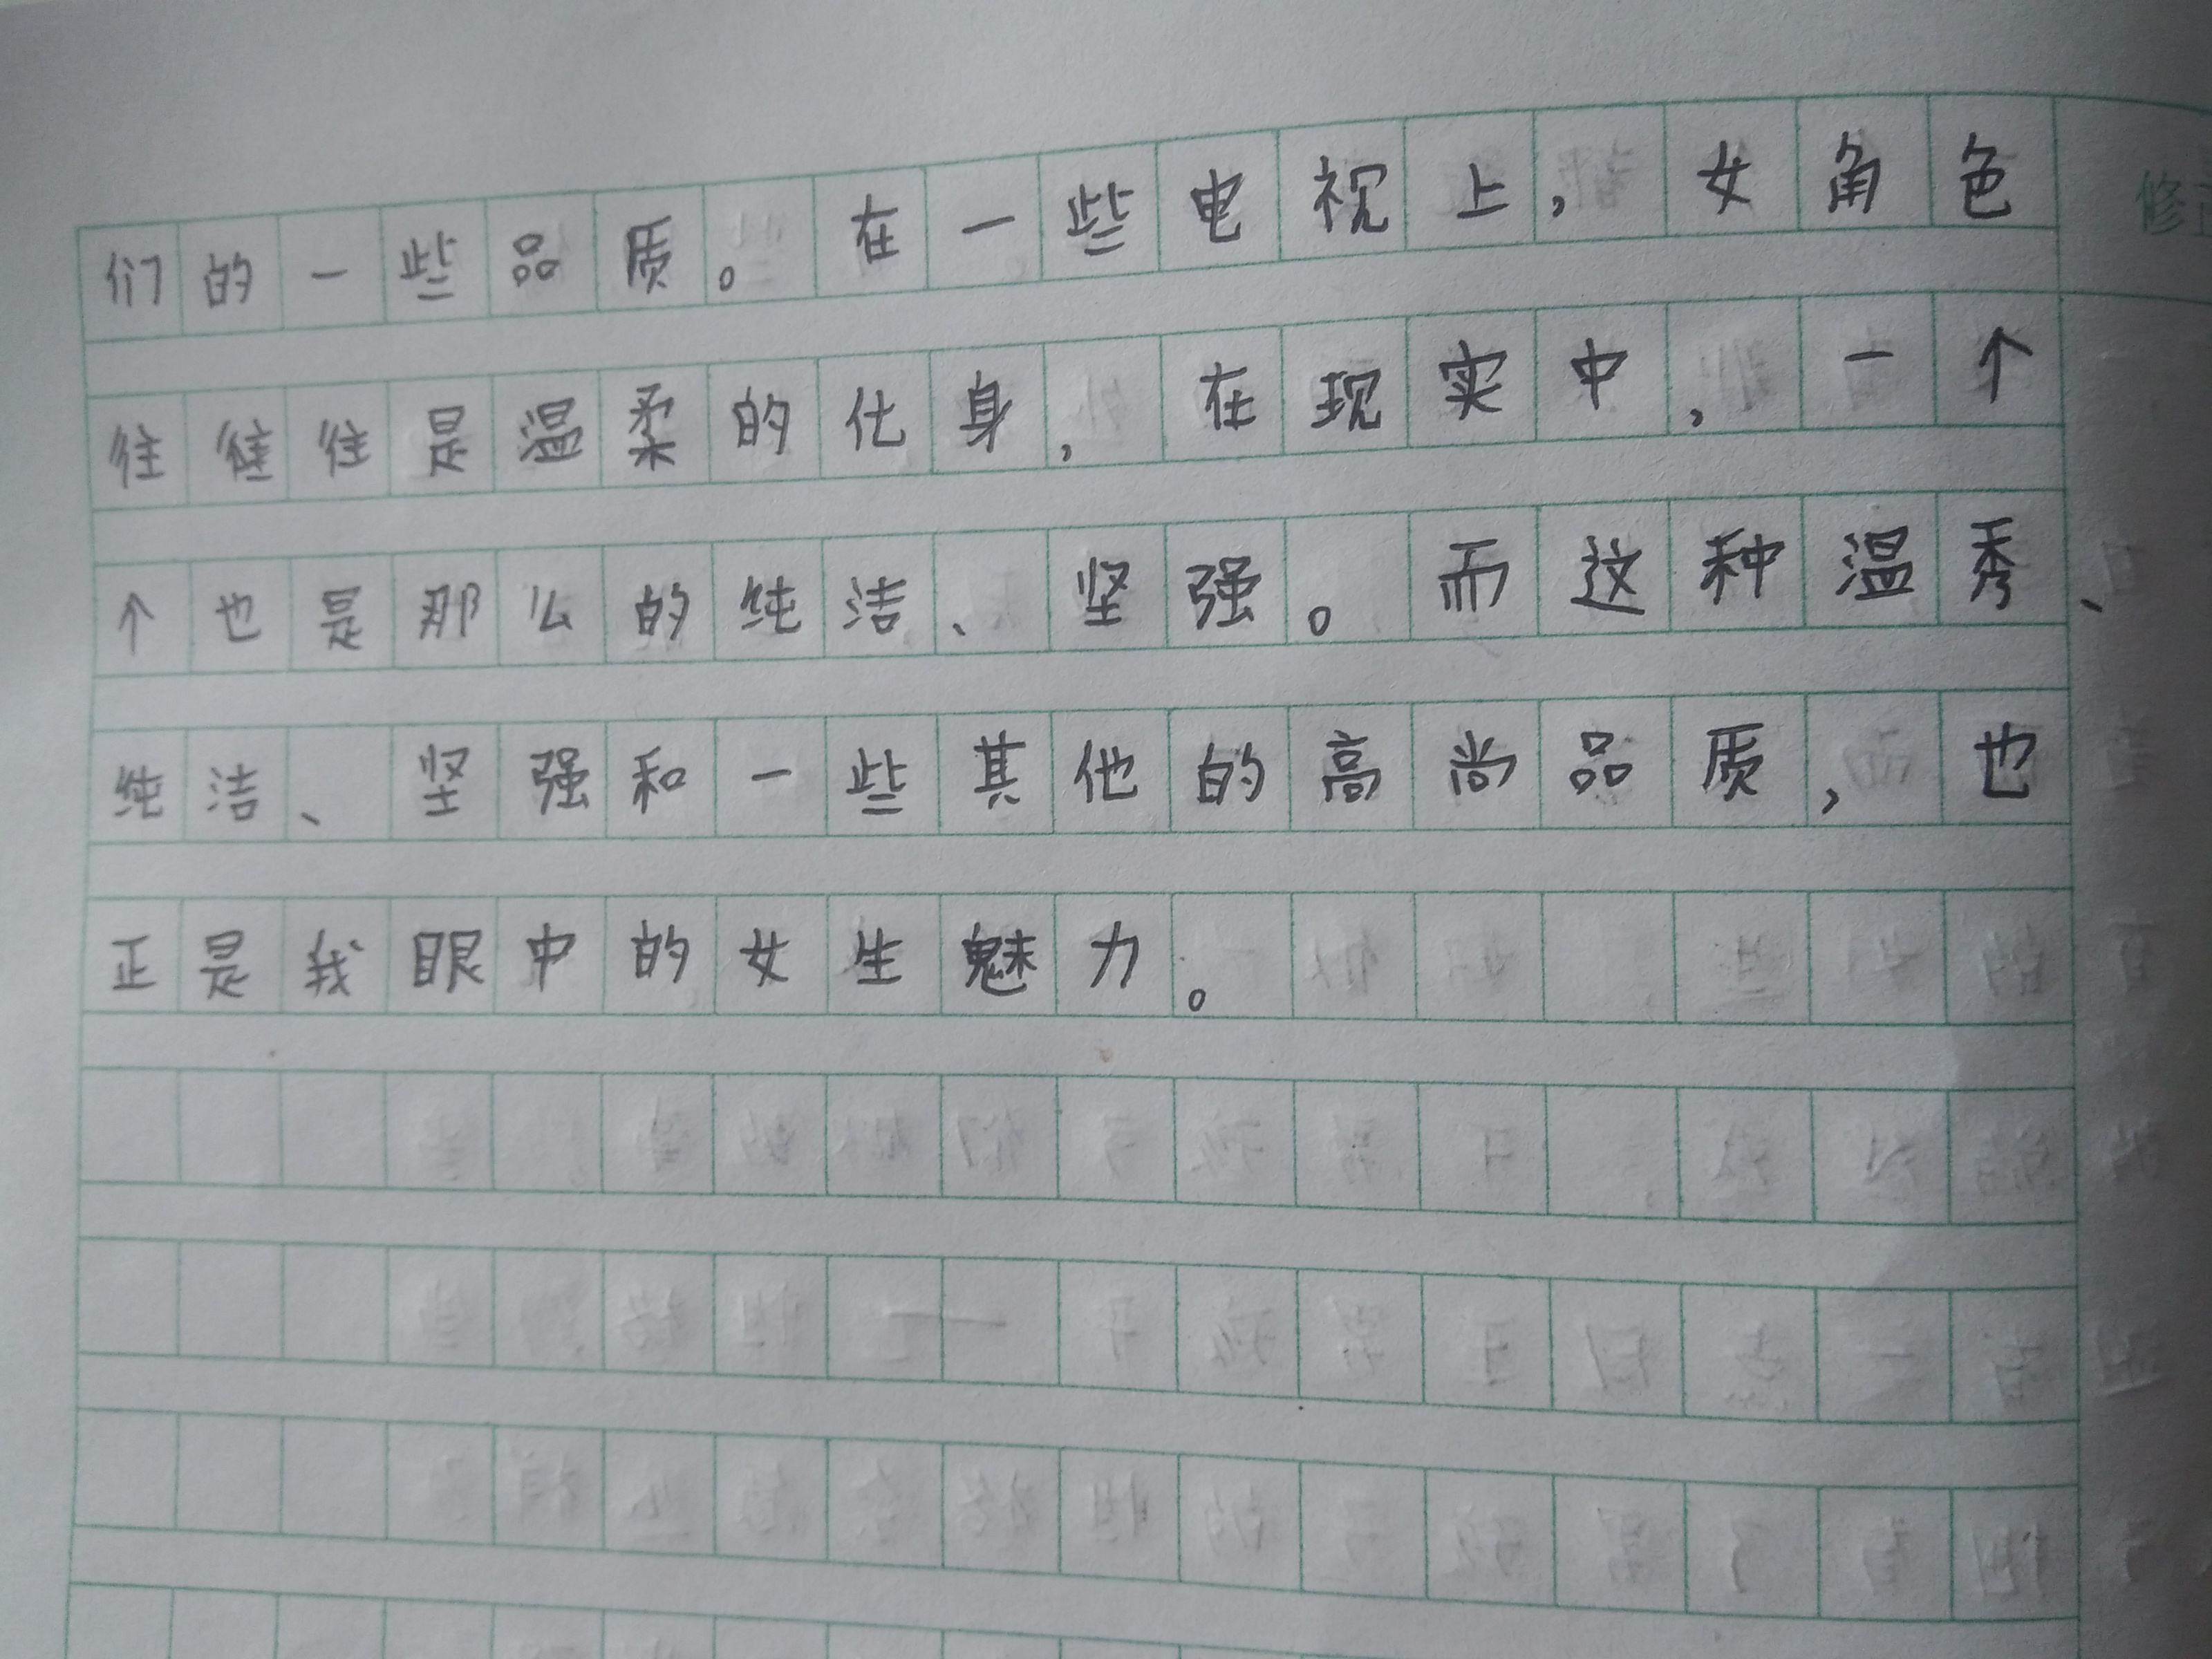 们的一些品质。在一些电视上，女角色
往往往是温柔的化身，在现实中，一个
个也是那么的纯洁、坚强。而这种温秀、
纯洁、坚强和一些其他的高尚品质，也
正是我眼中的女生魅力。
修